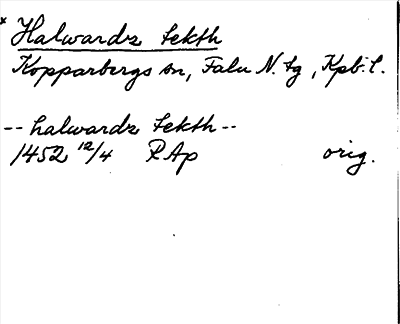 * Halwardz tekth
Kopparbergs sn, Falu N. tg, Kpb. l.
-- halwardz tekth --
1452 12/4 RAp orig.